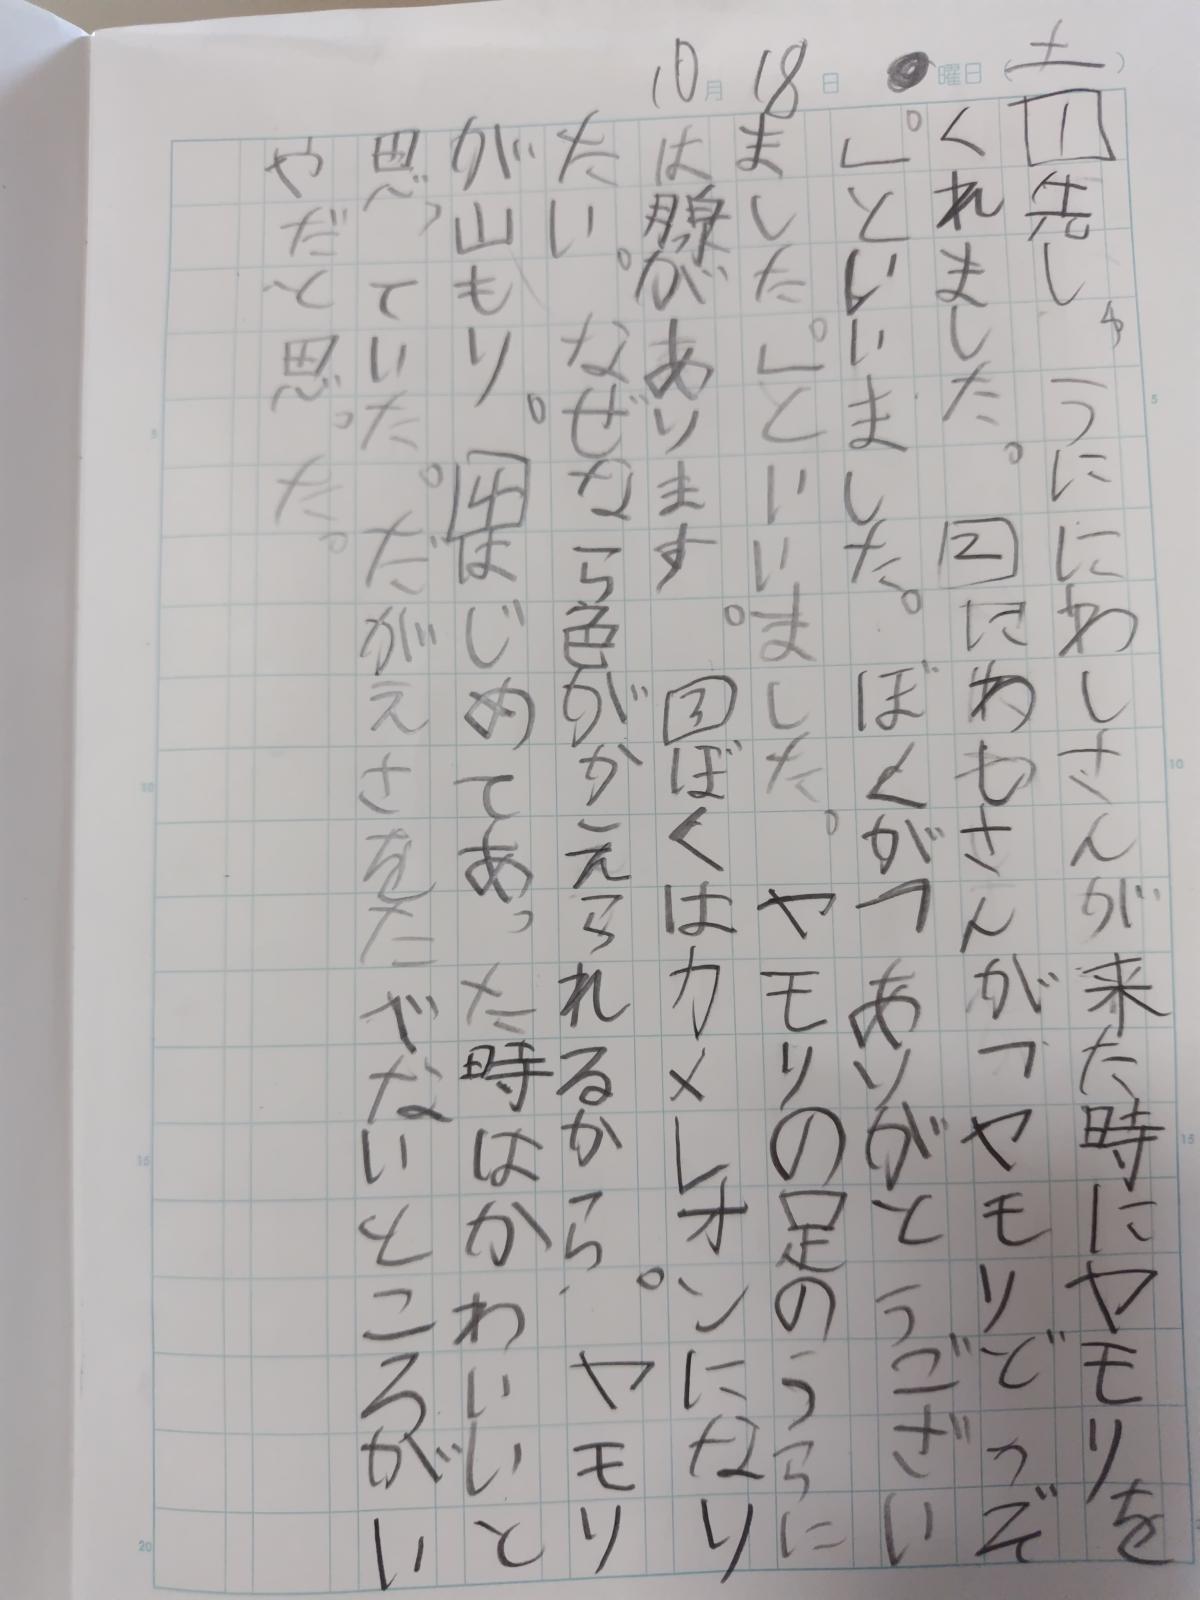 10月18日 曜日(土)
1先しゅうににわしさんが来た時にヤモリを
くれました。2にわもさんが「ヤモリどっぞ
。」といいました。ぼくが「ありがとうござい
ました。」といいました。ヤモリの足のうらに
は線があります。3ぼくはカメレオンになり
たい。なぜなら色がかえられるから。ヤモリ
が山もり。4はじめてあった時はかわいいと
思っていた。だがえさをたべないところがい
やだと思った。
5
10
15
20
5
10
15